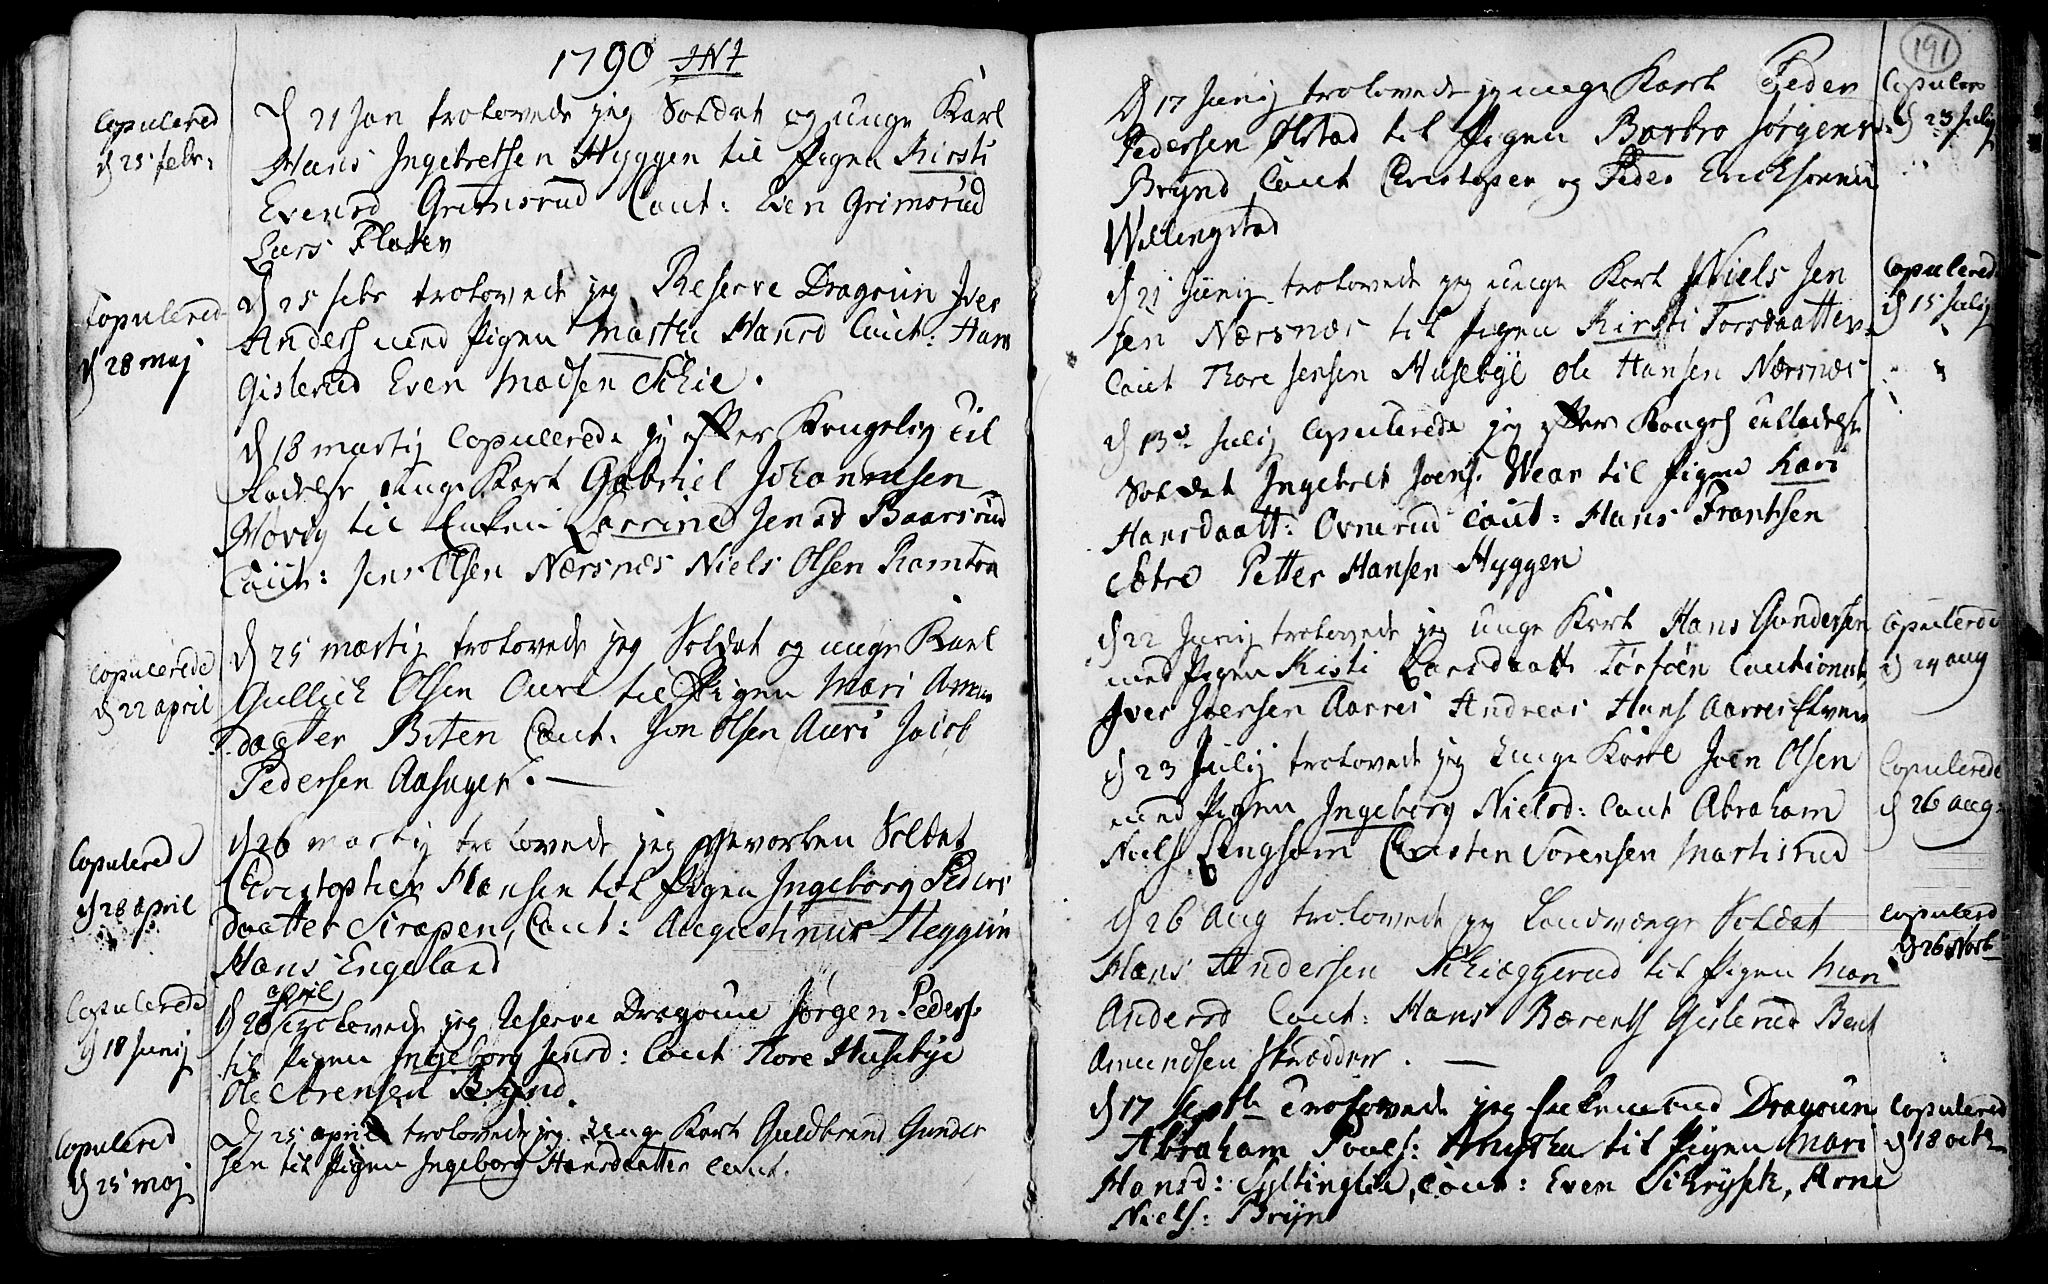 1790 JNJ
Copulered
d 25 febr:
d 21 Jan trolovede jeg Soldat og unge Karl
Hans Ingebretsen Hyggen til Pigen Kirsti
Evensd Grimsrud Caut: Even Grimsrud
Lars Floten
Copulered
d 28 maj
d 25 febr trolovede jeg Reserve Dragoun Iver
Anders med Pigen Marthe Hansd Caut: Hans
Gislerud Even Madsen Schie.
d 18 martij Copulerede jeg efter Kongelig Til
ladelse unge Karl Gabriel Johannesen
Movig til Enken Larrine Jensd Baarsrud
Caut: Jens Olsen Nærsnæs Niels Olsen Ramton
Copulerede
d 22 april
d 25 martij trolovede jeg Soldat og unge Karl
Gullich Olsen Auri til Pigen Mari Amun
daatter Biten Caut. Jon Olsen Auri Jacob
Pedersen Aasager. —
Copulered
d 28 april
d 26 martij trolovede jeg Gevorben Soldat
Christopher Hansen til Pigen Ingeborg Peders
daatter Sirapen, Caut: Augustinus Heggum
Hans Engeland
Copulerede
d 18 Junij
april
d 20 trolovede jeg Reserve Dragoun Jørgen Peders
til Pigen Ingeborg Jensd: Caut Thore Husebye
Ole Arensen Brynd.
Copulered
d 25 maj
d 25 april trolovede jeg unge Karl Guldbrand Gunder
sen til Pigen Ingeborg Hansdaatter Caut.
191
d 17 Junij trolovede jeg unge Karl Peder
Pedersen Østad til Pigen Barbro Jørgens d.
Brynd Caut Christopher og Peder Ericksønner
Willingstad
Copulere
d 23 Julij
d 21 Junij trolovede jeg unge Karl Niels Jen
sen Nærsnæs til Pigen Kirsti Torsdaatter
Caut Thore Jensen Husebye Ole Hansen Nærsnæs
Copulered
d 15 Julij
d 13 Julij Copulerede jeg efter Konges tilladelse
Soldat Ingebret Joens. Wear til Pigen Kari
Hansdaatt: Ovnerud Caut: Hans Frantsen
Sætre Petter Hansen Hyggen
d 22 Junij trolovede jeg unge Karl Hans Gundersen
med Pigen Kisti Larsdaatt Torfoen Cautionist,
Iver Joensen Aarres Andreas Hans Aarres
Copulerede
d 24 aug
d 23 Julij trolovede jeg unge Karl Joen Olsen
med Pigen Ingeborg Nielsd: Caut Abraham
Niels Lengsom Christen Sørensen Martisrud
Copulerede
d 26 aug.
d 26 Aug trolovede jeg Landværge Soldat
Hans Andersen Schiæggerud til Pigen Mari
Andersd Caut: Hans Bærents Gislerud Bent
Amundsen Skrædder. —
Copulerd
d 26 Novb
d 17 Septb trolovede jeg Dragoun
Abraham Pouls: til Pigen Mari
Hansd: Syltinglie, Caut: Even Schrysset, Arne
Niels: Bryn
Copulered
d 18 octb